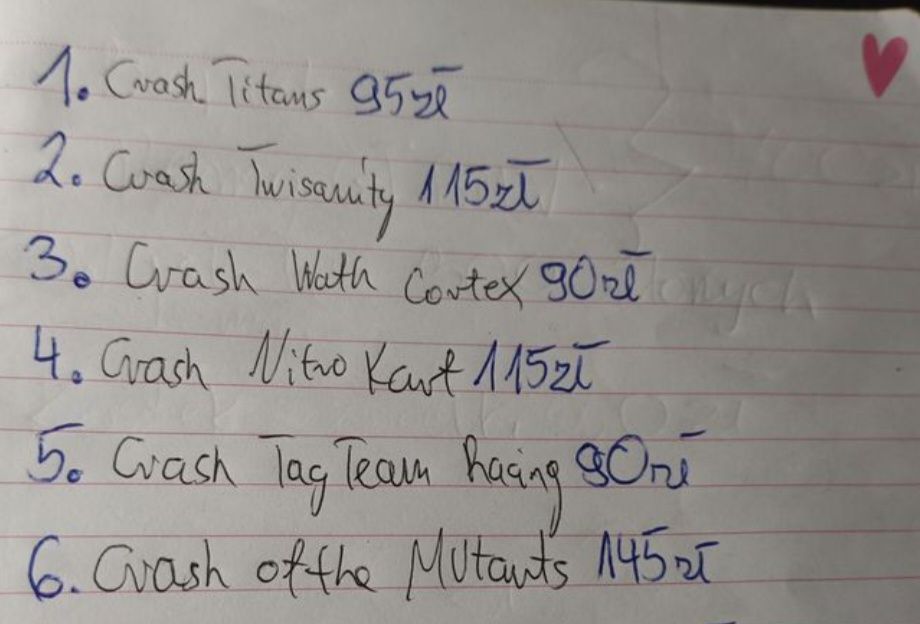 1. Crash Titans 95zł
2. Crash Twisanity 115zł
3. Crash Wath Cortex 90zł
4. Crash Nitro Kart 115zł
5. Crash Tag Team Racing 90zł
6. Crash of the Mutants 145zł